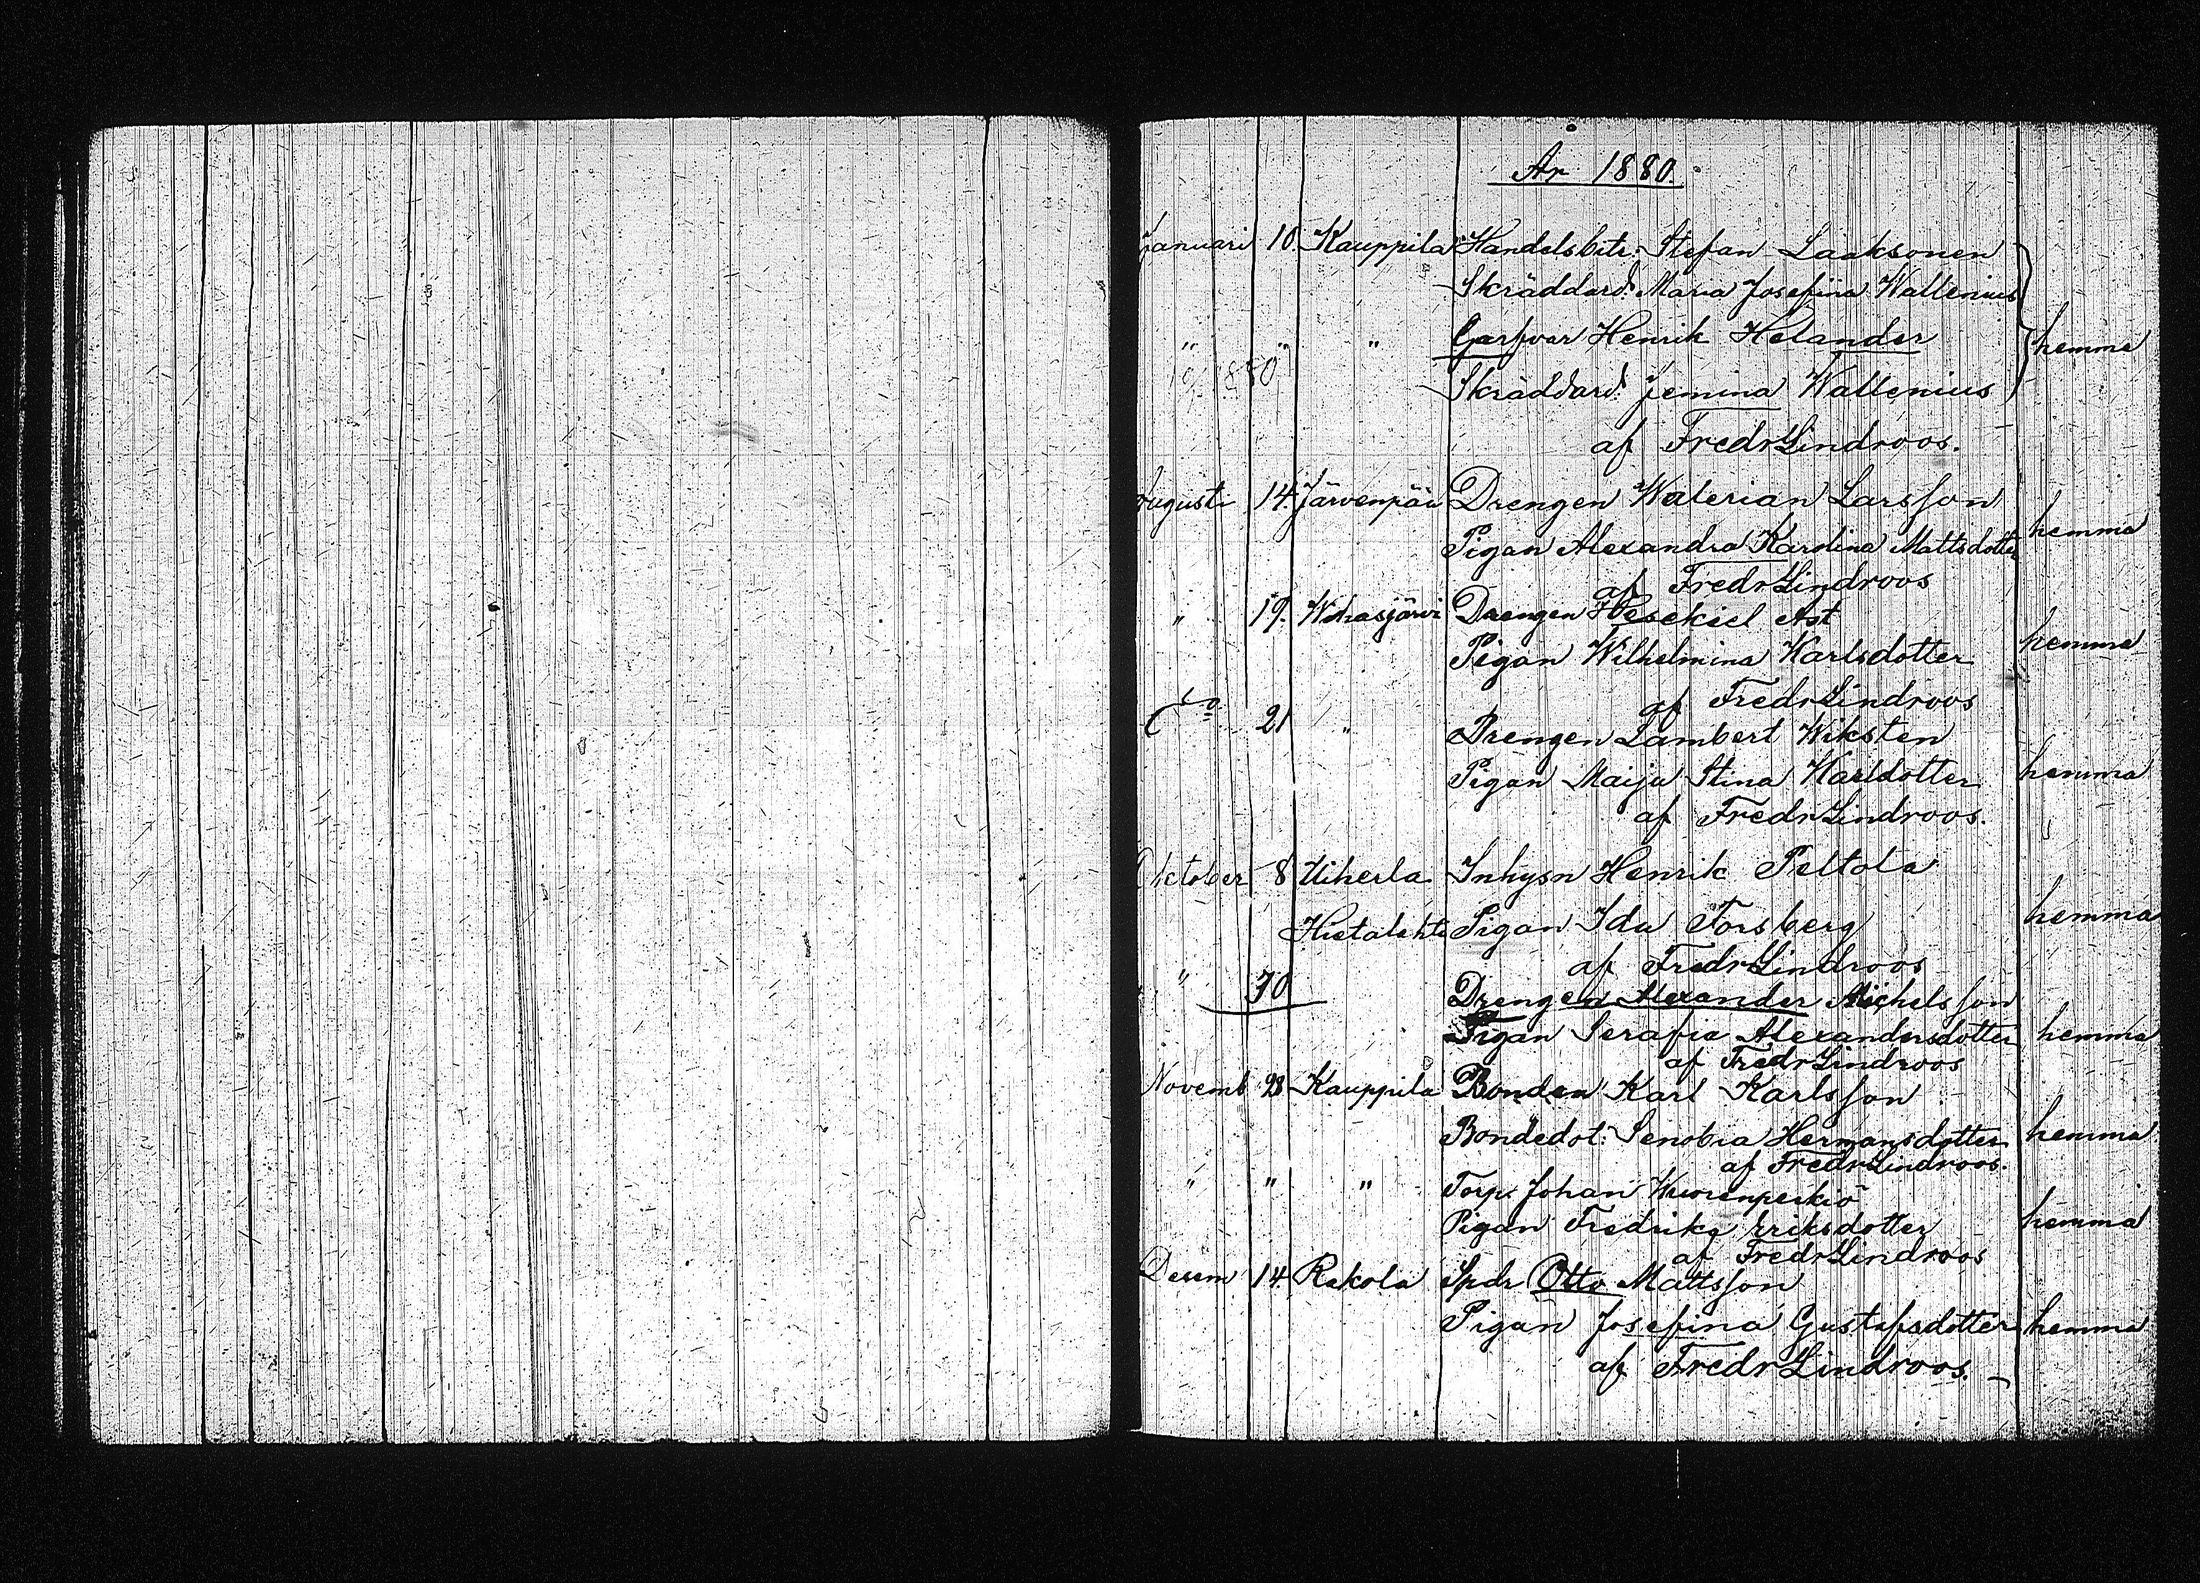 År 1880.
Januari 10. Kauppila Handelsbitr: Stefan Laaksonen
Skräddard: Maria Josefina Wallenius
" " " Garfvar Henrik Helander hemma
1880
Skräddard: Jemina Wallenius
af Fredr Lindroos.
Augusti 14. Järvenpää Drengen Walerian Larsson
Pigan Alexandra Karolina Mattsdotter hemma
af Fredr Lindroos
" 19. Drengen Hesekiel Ast
Pigan Wilhelmina Karlsdotter hemma
af Fredr Lindroos
21 " Drengen Lambert Wiksten
Pigan Maija Stina Karldotter hemma
af Fredr Lindroos.
Oktober 8 Uiherla Inhysn Henrik Peltola
Hietalahti Pigan Ida Forsberg hemma
af Fredr Lindroos
" 30 Drengen Alexander Michelsson
Pigan Serafia Alexandersdotter hemma
af Fredr Lindroos
Novemb 28 Kauppila Bonden Karl Karlsson
Bondedot: Senobia Hermansdotter hemma
af Fredr Lindroos.
" " " Torp. Johan Wuorenperkiö
Pigan Fredrika Eriksdotter hemma
af Fredr Lindroos
Desem 14. Rekola Spdr Otto Mattsson
Pigan Josefina Gustafsdotter hemma
af Fredr Lindroos.